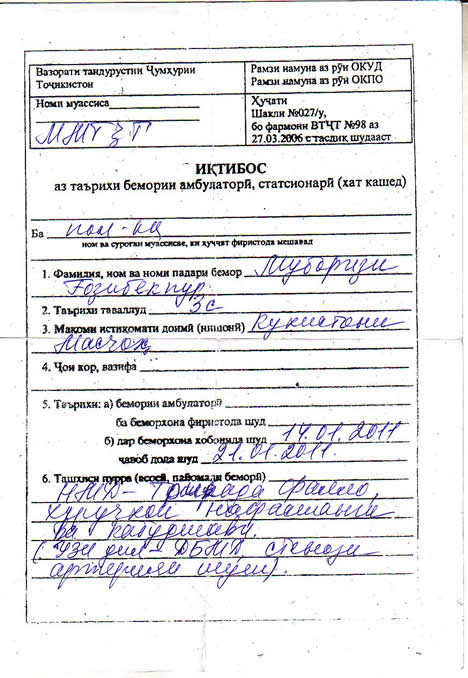 Вазорати тандурустии Ҷумҳурии
Тоҷикистон
Номи муассиса
Рамзи намуна аз рӯи ОКУД
Рамзи намуна аз рӯи ОКПО
Ҳуҷҷати
Шакли №027/у,
бо фармони ВТҶТ №98 аз
27.03.2006 с тасдиқ шудааст
ИҚТИБОС
аз таърихи бемории амбулаторӣ, статсионарӣ (хат кашед)
Ба
ном ва суроғаи муассисае, ки ҳуҷҷат фиристода мешавад
1. Фамилия, ном ва номи падари бемор Муборизи
Ғозибекпур
2. Таърихи таваллуд 3с
3. Макони истиқомати доимӣ (нишонӣ) Кӯҳистони
Масчоҳ
4. Ҷои кор, вазифа
5. Таърихи: а) бемории амбулаторӣ
ба беморхона фиристода шуд
б) дар беморхона хобонида шуд 14.01.2011
ҷавоб дода шуд 21.01.2011.
6. Ташхиси пурра (асосӣ, паёмади беморӣ)
Фалло,
ва кабудшавӣ.
артерияи шуш).